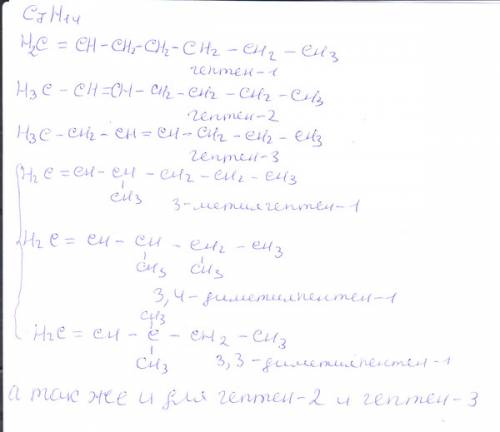 C7H14
H2C = CH-CH2-CH2-CH2-CH2-CH3
гептен-1
H3C-CH=CH-CH2-CH2-CH2-CH3
гептен-2
H3C-CH2-CH=CH-CH2-CH2-CH3
гептен-3
H2C=CH-CH-CH2-CH2-CH3
CH3
3-метилгептен-1
H2C = CH-CH-CH2-CH3
CH3 CH3
3,4-диметилпентен-1
CH3
H2C=CH-C-CH2-CH3
CH3
3,3-диметилпентен-1
а так же и для гептен-2 и гептен-3